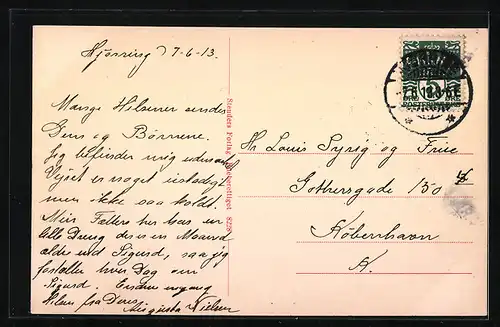 Hjörring 7-6-13.
Mange Hilsener sendes
Dem og Børnene.
Jeg befinder mig udmærket
Vejret er noget ustadigt
men ikke saa koldt.
Min Fætter her har en
lille Dreng der er en Maaned
ældre end Sigurd, saa jeg
fortæller hver Dag om
Sigurd. Endnu engang
Hilsen fra Deres
Augusta Nielsen
Stenders Forlag Eneberettiget 828
Hr Louis Pyrig og Frue
Gothersgade 150 4
København
K.
5